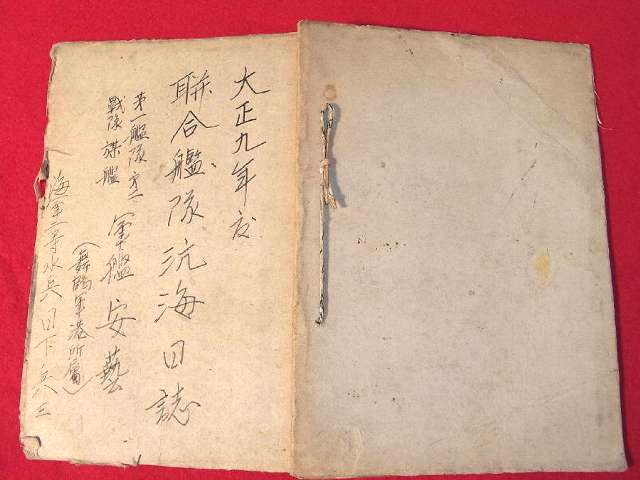 大正九年度
聯合艦隊航海日誌
第一艦隊第二
戰隊旗艦
軍艦安藝
（舞鶴軍港所属）
海軍三等水兵日下兵三